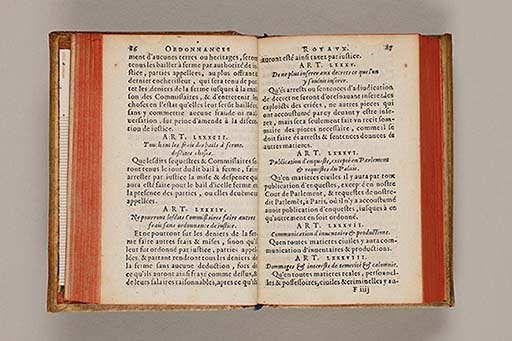 86 ORDONNANCES
ment d'aucunes terres ou heritages, seront
tenus les bailler à ferme par authorité de iu-
stice, parties appellees, au plus offrant &
dernier encherisseur, qui sera tenu de por-
ter les deniers de la ferme iusques à la mai-
son des Commissaires, & d'entretenir les
choses en l'estat qu'elles leur serōt baillées,
sans y commettre aucune fraude ou mal-
versation, sur peine d'amende à la discre-
tion de iustice.
ART. LXXXIII.
Touchant les frais des bails à ferme,
desdites choses.
Que lesdits sequestres & Commissaires se-
ront tenus le iour dudit bail à ferme, faire
arrester par iustice la mise & despence qui
aura esté faite pour le bail d'icelle ferme en
la presence des parties, ou elles deuëment
appellées.
ART. LXXXIV.
Ne pourront lesdits Commissaires faire autres
frais sans ordonnance de iustice.
Et ne pourront sur les deniers de la fer-
me faire autres frais & mises, sinon qu'il
leur fut ordonné par iustice, parties appel-
lées, & partant rendront tous les deniers de
la ferme sans aucune deduction, fors de
ce qu'ils auront ainsi frayé comme dessus, &
de leurs salaires raisonnables, apres ce qu'ils
ROYAVX. 87
auront esté ainsi taxés par iustice.
ART. LXXXV.
De ne plus inserer aux decrets ce que l'on
y souloit inserer.
Qu'és arrests ou sentences d'adiudication
de decret ne seront d'oresnauant inserez les
exploicts des criées, ne autres pieces qui
ont accoustumé par cy deuant y estre inse-
rez, mais sera seulement fait vn recit som-
maire des pieces necessaire, comme il se
doit faire és arrests & sentences données és
autres matieres.
ART. LXXXVI.
Publication d'enqueste, excepté en Parlement
& requestes du Palais.
Qu'en matieres ciuiles il y aura par tout
publication d'enquestes, excepté en nostre
Cour de Parlement, & requestes de nostre-
dit Parlemēt, à Paris, où il n'y a accoustumé
auoir publication d'enquestes, iusques à ce
qu'autrement en soit ordonné.
ART. LXXXVII.
Communication d'inuentaire & productions.
Qu'en toutes matieres ciuiles y aura com-
munication d'inuentaires & productions.
ART. LXXXVIII.
Dommages & interests de temerité & calomnie.
Qu'en toutes matieres reales, personel-
les & possessoires, ciuiles & criminelles y au-
F iiij